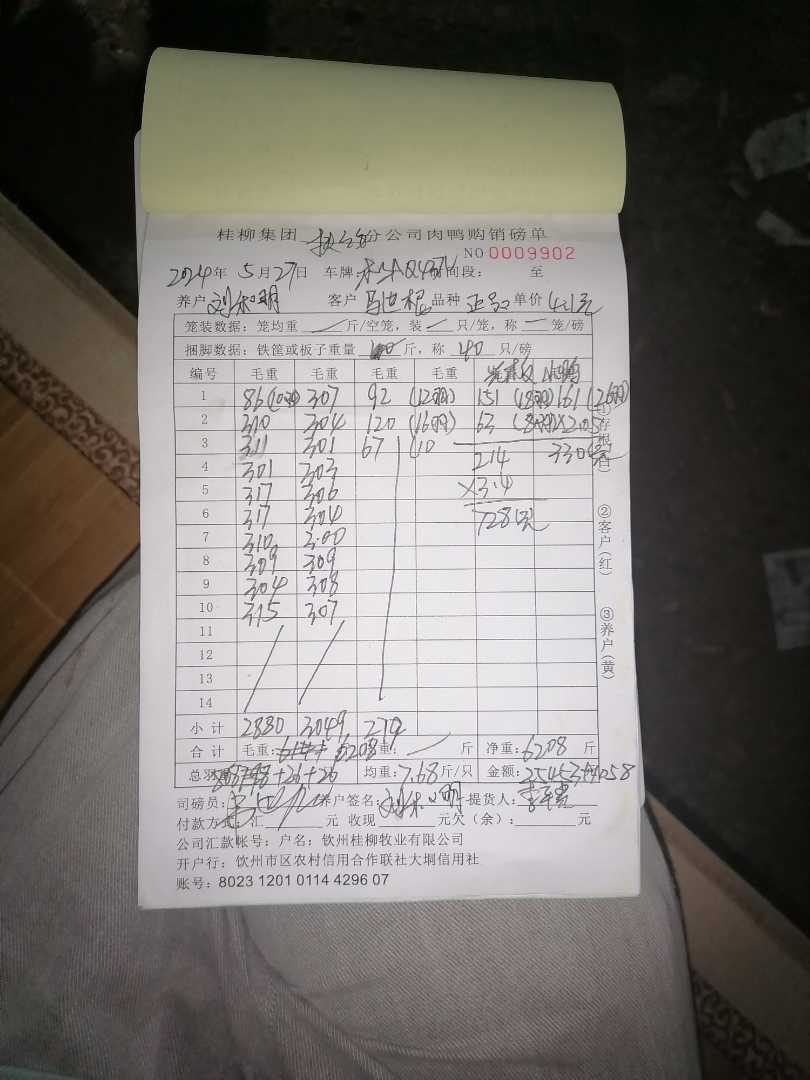 桂柳集团 分公司肉鸭购销磅单
NO 0009902
2024年 5月27日 车牌: 时间段: 至
养户 刘和明 客户 马世根 品种 单价 4.1元
笼装数据: 笼均重 斤/空笼, 装 只/笼, 称 笼/磅
捆脚数据: 铁筐或板子重量 斤, 称 40 只/磅
编号 毛重 毛重 毛重 毛重
1 86 307 92 (12羽) 151 (18羽) 161 (26羽)
2 310 304 120 (16羽) 63 (8羽) ×2.05
3 311 301 67 (10 214 330元
4 301 303
5 317 306 ×3.4
6 317 304 728元
7 310 300
8 309 309
9 304 308
10 315 307
11
12
13
14
小计 2880 3049 279
合计 毛重: 6208 重: 斤 净重: 6208 斤
总羽 +26+26 均重: 7.68 斤/只 金额:
司磅员: 养户签名: 刘和明 提货人:
付款方式: 汇 元 收现 元欠(余): 元
公司汇款帐号: 户名: 钦州桂柳牧业有限公司
开户行: 钦州市区农村信用合作联社大垌信用社
账号: 8023 1201 0114 4296 07
①存根(白)
②客户(红)
③养户(黄)